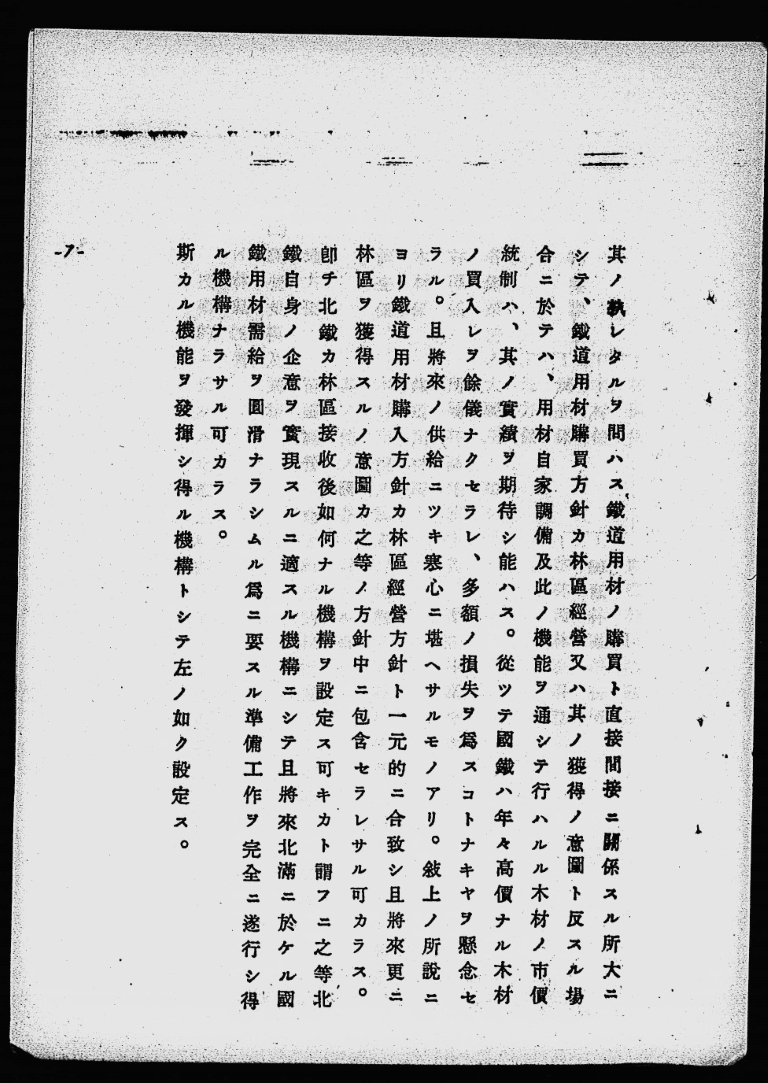 其ノ孰レタルヲ問ハス鐵道用材ノ購買ト直接間接ニ關係スル所大ニ
シテ、鐵道用材購買方針カ林區經營又ハ其ノ獲得ノ意圖ト反スル場
合ニ於テハ、用材自家調備及此ノ機能ヲ通シテ行ハルル木材ノ市價
統制ハ、其ノ實績ヲ期待シ能ハス。從ツテ國鐵ハ年々高價ナル木材
ノ買入レヲ餘儀ナクセラレ、多額ノ損失ヲ爲スコトナキヤヲ懸念セ
ラル。且將來ノ供給ニツキ寒心ニ堪ヘサルモノアリ。敍上ノ所說ニ
ヨリ鐵道用材購入方針カ林區經營方針ト一元的ニ合致シ且將來更ニ
林區ヲ獲得スルノ意圖カ之等ノ方針中ニ包含セラレサル可カラス。
卽チ北鐵カ林區接收後如何ナル機構ヲ設定ス可キカト謂フニ之等北
鐵自身ノ企意ヲ實現スルニ適スル機構ニシテ且將來北滿ニ於ケル國
鐵用材需給ヲ圓滑ナラシムル爲ニ要スル準備工作ヲ完全ニ遂行シ得
ル機構ナラサル可カラス。
斯カル機能ヲ發揮シ得ル機構トシテ左ノ如ク設定ス。
-7-